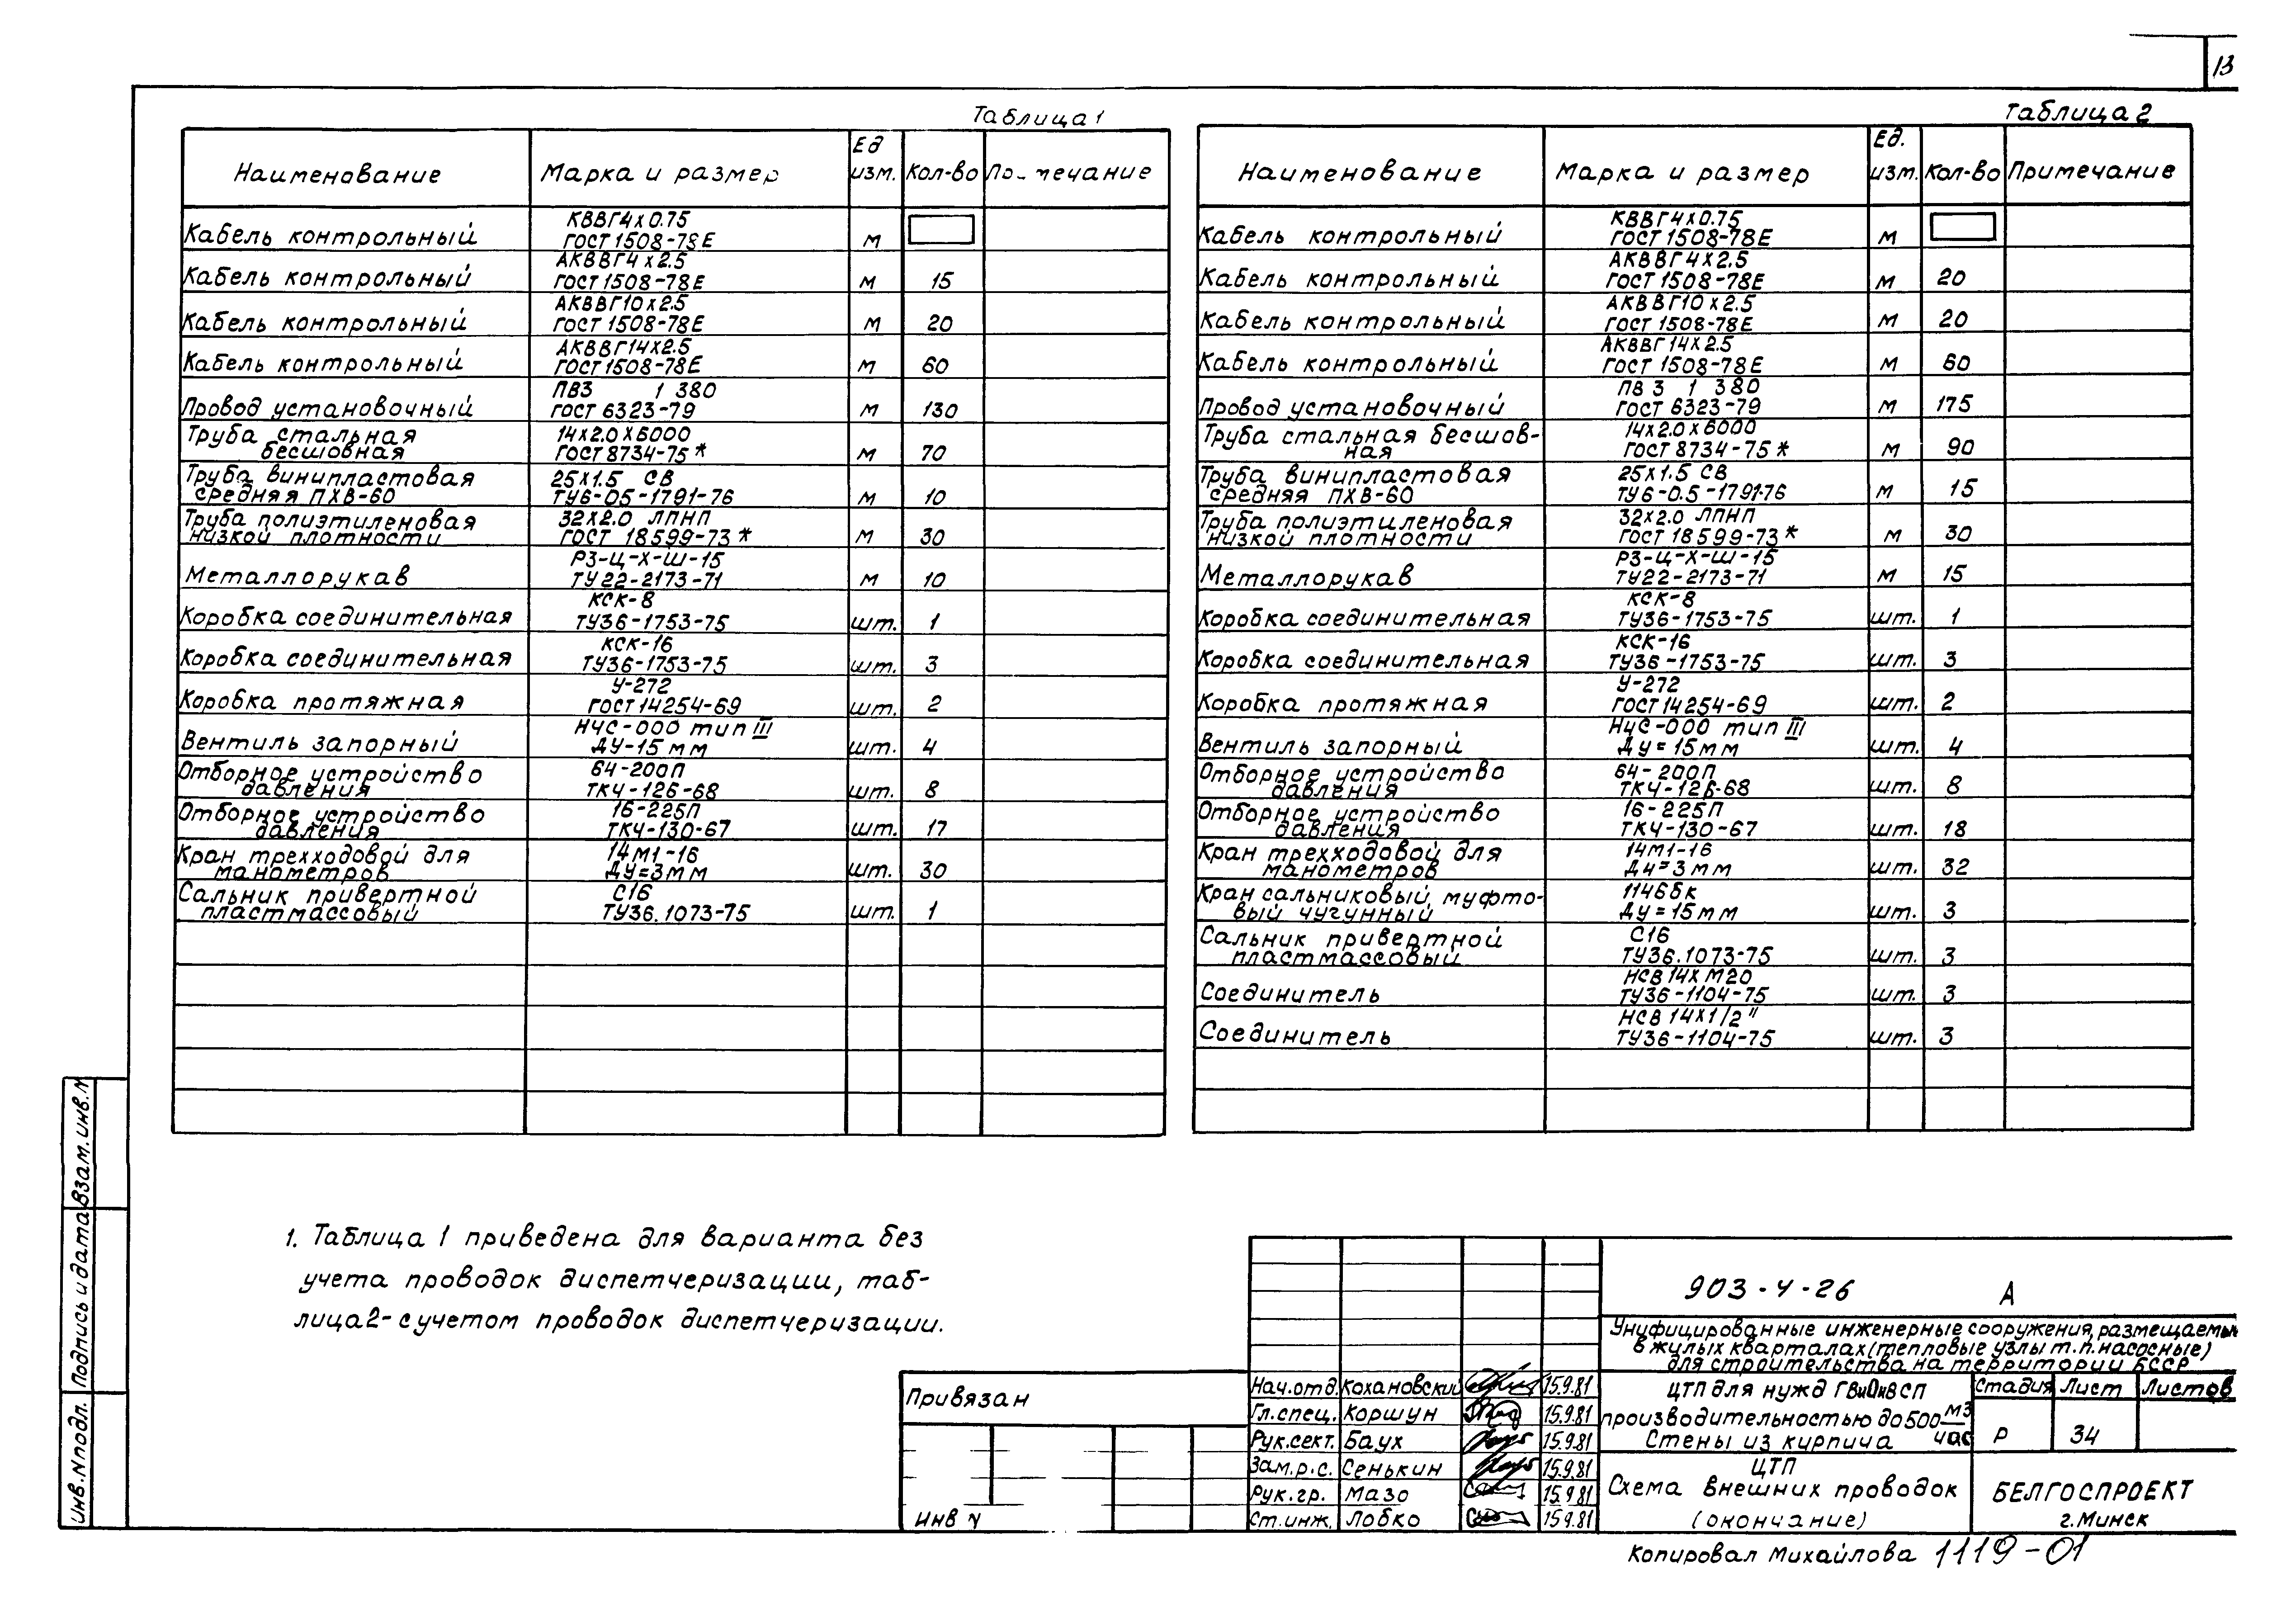 13
Таблица 1
Наименование | Марка и размер | Ед изм. | Кол-во | мечание
Кабель контрольный | КВВГ4х0.75 ГОСТ 1508-78Е | м
Кабель контрольный | АКВВГ4х2.5 ГОСТ 1508-78Е | м | 15
Кабель контрольный | АКВВГ10х2.5 ГОСТ 1508-78Е | м | 20
Кабель контрольный | АКВВГ14х2.5 ГОСТ 1508-78Е | м | 60
Провод установочный | ПВ3 1 380 ГОСТ 6323-79 | м | 130
Труба стальная бесшовная | 14х2.0х6000 ГОСТ 8734-75* | м | 70
Труба винипластовая средняя ПХВ-60 | 25х1.5 СВ ТУ6-05-1791-76 | м | 10
Труба полиэтиленовая низкой плотности | 32х2.0 ЛПНП ГОСТ 18599-73* | м | 30
Металлорукав | РЗ-Ц-Х-Ш-15 ТУ22-2173-71 | м | 10
Коробка соединительная | КСК-8 ТУ36-1753-75 | шт. | 1
Коробка соединительная | КСК-16 ТУ36-1753-75 | шт. | 3
Коробка протяжная | У-272 ГОСТ 14254-69 | шт. | 2
Вентиль запорный | НЧС-000 тип III ДУ-15 мм | шт. | 4
Отборное устройство давления | 64-200П ТКЧ-126-68 | шт. | 8
Отборное устройство давления | 16-225П ТКЧ-130-67 | шт. | 17
Кран трехходовой для манометров | 14М1-16 ДУ=3мм | шт. | 30
Сальник привертной пластмассовый | С16 ТУ36.1073-75 | шт. | 1
Таблица 2
Наименование | Марка и размер | Ед. изм. | Кол-во | Примечание
Кабель контрольный | КВВГ4х0.75 ГОСТ 1508-78Е | м
Кабель контрольный | АКВВГ4х2.5 ГОСТ 1508-78Е | м | 20
Кабель контрольный | АКВВГ10х2.5 ГОСТ 1508-78Е | м | 20
Кабель контрольный | АКВВГ14х2.5 ГОСТ 1508-78Е | м | 60
Провод установочный | ПВ3 1 380 ГОСТ 6323-79 | м | 175
Труба стальная бесшовная | 14х2.0х6000 ГОСТ 8734-75* | м | 90
Труба винипластовая средняя ПХВ-60 | 25х1.5 СВ ТУ6-0.5-1791-76 | м | 15
Труба полиэтиленовая низкой плотности | 32х2.0 ЛПНП ГОСТ 18599-73* | м | 30
Металлорукав | РЗ-Ц-Х-Ш-15 ТУ22-2173-71 | м | 15
Коробка соединительная | КСК-8 ТУ36-1753-75 | шт. | 1
Коробка соединительная | КСК-16 ТУ36-1753-75 | шт. | 3
Коробка протяжная | У-272 ГОСТ 14254-69 | шт. | 2
Вентиль запорный | НЧС-000 тип III Ду=15мм | шт. | 4
Отборное устройство давления | 64-200П ТКЧ-126-68 | шт. | 8
Отборное устройство давления | 16-225П ТКЧ-130-67 | шт. | 18
Кран трехходовой для манометров | 14М1-16 Ду=3мм | шт. | 32
Кран сальниковый муфтовый чугунный | 11Ч6бк Ду=15мм | шт. | 3
Сальник привертной пластмассовый | С16 ТУ36.1073-75 | шт. | 3
Соединитель | НСВ 14х М20 ТУ36-1104-75 | шт. | 3
Соединитель | НСВ 14х1/2" ТУ36-1104-75 | шт. | 3
1. Таблица 1 приведена для варианта без
учета проводок диспетчеризации, таб-
лица 2- с учетом проводок диспетчеризации.
Инв.N подл. | Подпись и дата | Взам.инв.N
Привязан
Инв N
Нач.отд. Кохановский 15.9.81
Гл.спец. Коршун 15.9.81
Рук.сект. Баух 15.9.81
Зам.р.с. Сенькин 15.9.81
Рук.гр. Мазо 15.9.81
Ст.инж. Лобко 15 9.81
903-4-26 А
Унифицированные инженерные сооружения, размещаемые
в жилых кварталах (тепловые узлы т.п. насосные)
для строительства на территории БССР
ЦТП для нужд ГВиОиВСП
производительностью до 500 м3/час
Стены из кирпича
Стадия | Лист | Листов
Р | 34
ЦТП
Схема внешних проводок
(окончание)
БЕЛГОСПРОЕКТ
г.Минск
Копировал Михайлова 1119-01